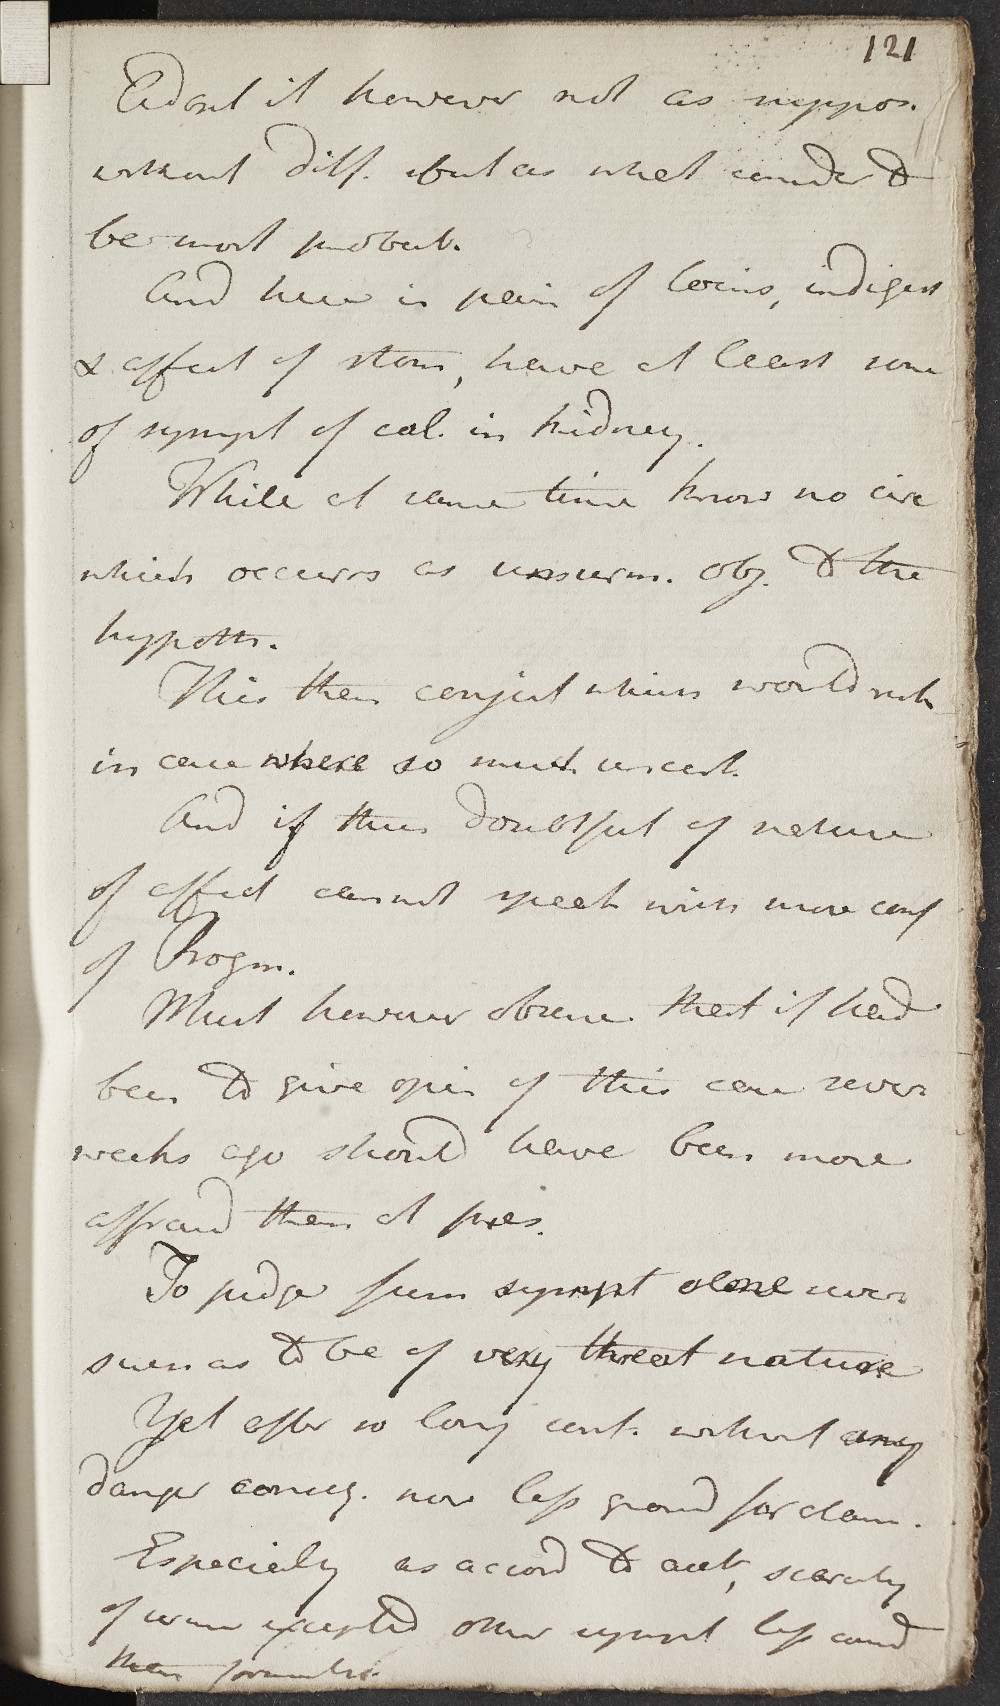 121
Adopt it however not as suppos.
without diff. but as what consider to
be most probab.
And here in pain of loins, indigest
& affect of stom, have at least some
of sympt of cal. in kidney.
While at same time know no circ
which occurs as unsurm. obj. to the
hypoth.
This then conject which would risk
in case where so much uncert.
And if thus doubtful of nature
of affect cannot speak with more conf
of Progn.
Must however observe that if had
been to give opin of this case sever
weeks ago should have been more
affraid than at pres.
To judge from sympt alone were
such as to be of very threat nature
Yet after so long cont. without any
danger conseq. now less ground for alarm.
Especially as accord to acct, scarcity
of urine excepted other sympt less consid
than formerly.